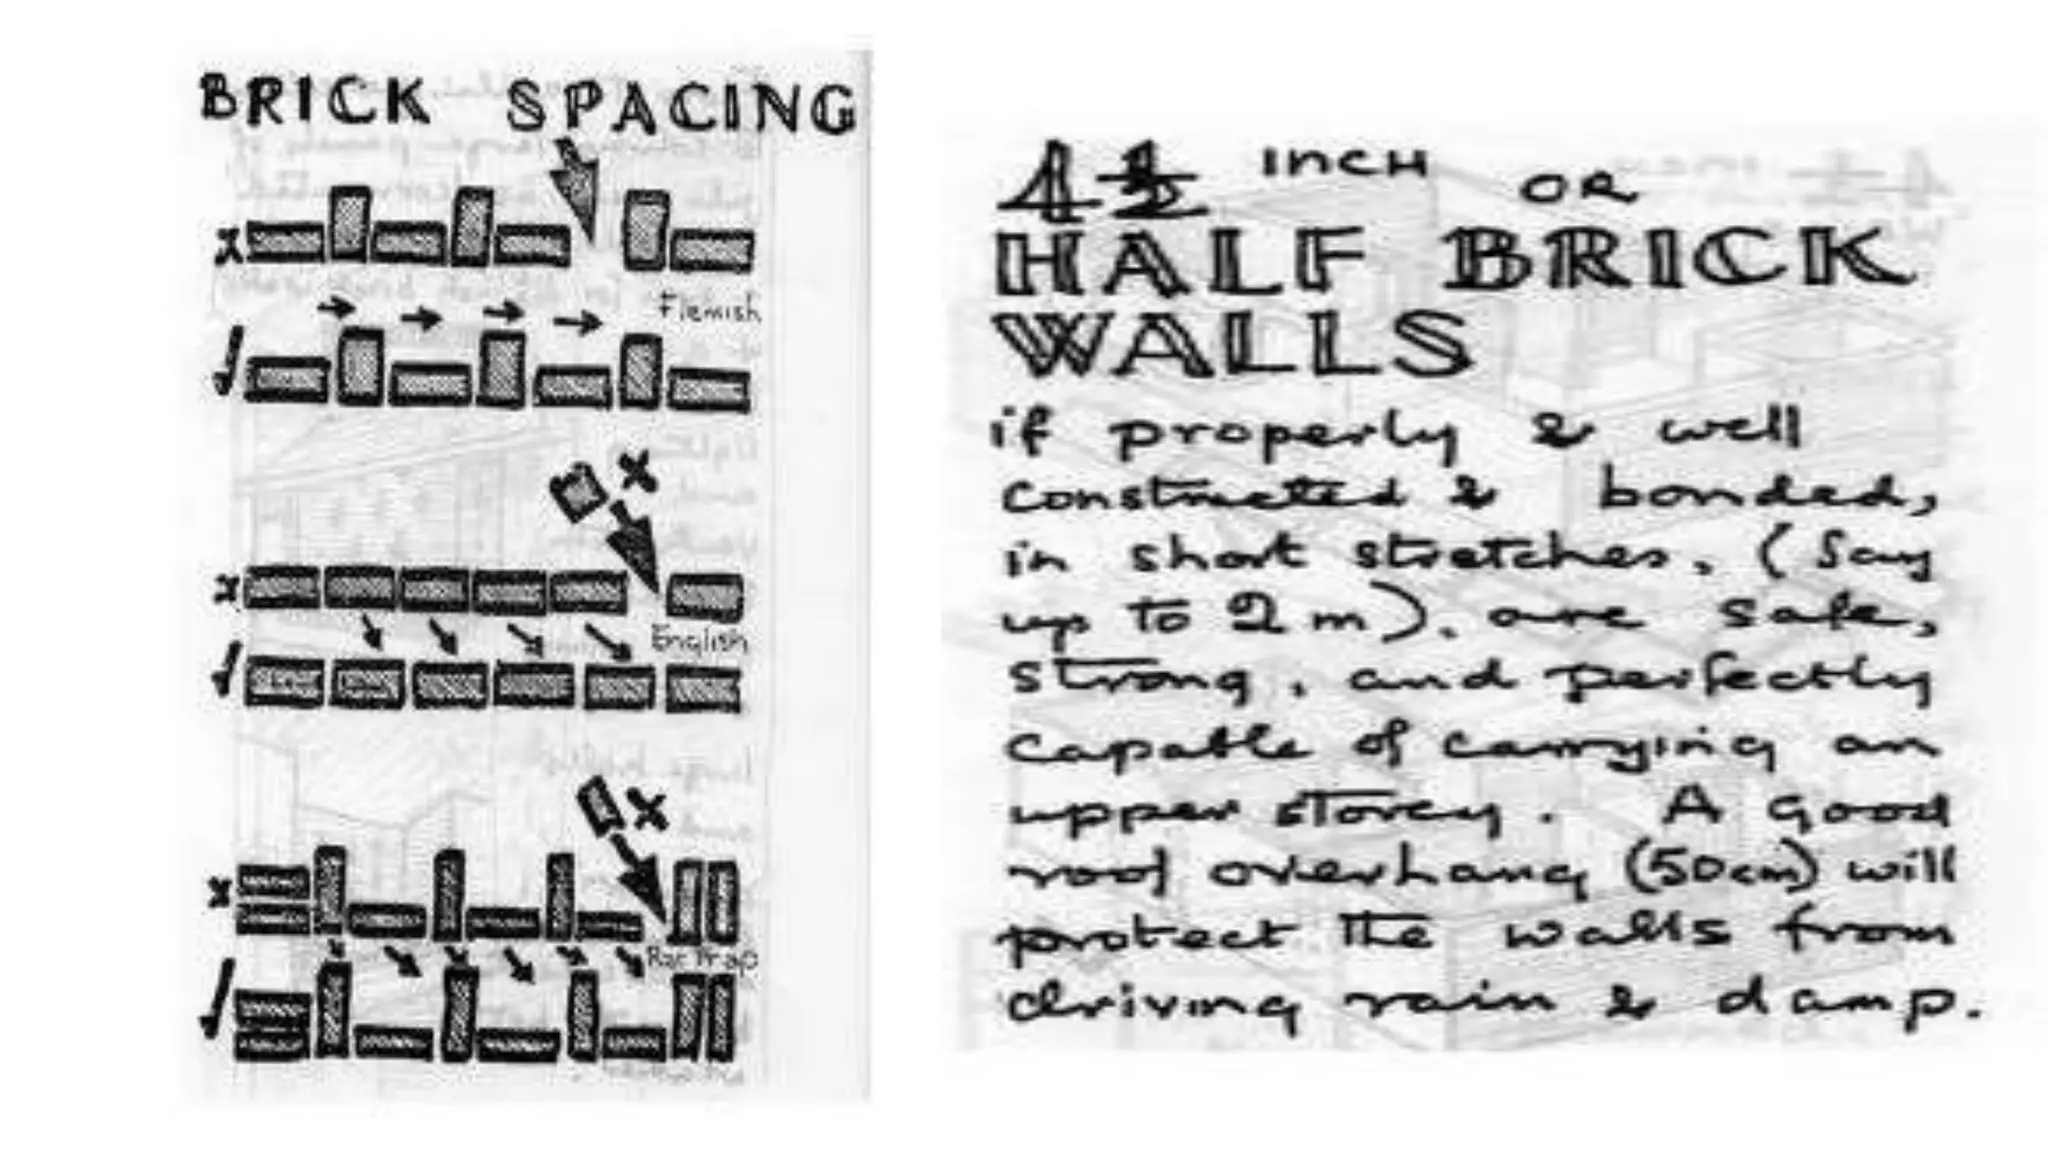 BRICK SPACING
x
Flemish
x
x
English
x
x
Rat Trap
4½ INCH OR
HALF BRICK
WALLS
if properly & well
constructed & bonded,
in short stretches, (Say
up to 2 m), are safe,
strong, and perfectly
capable of carrying an
upper storey. A good
roof overhang (50cm) will
protect the walls from
driving rain & damp.